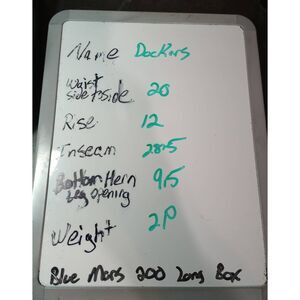 Name Dockers
Waist
side to side 20
Rise 12
Inseam 28.5
Bottom Hem 9.5
Leg Opening
Weight 2P
Blue Mars 200 Long Box